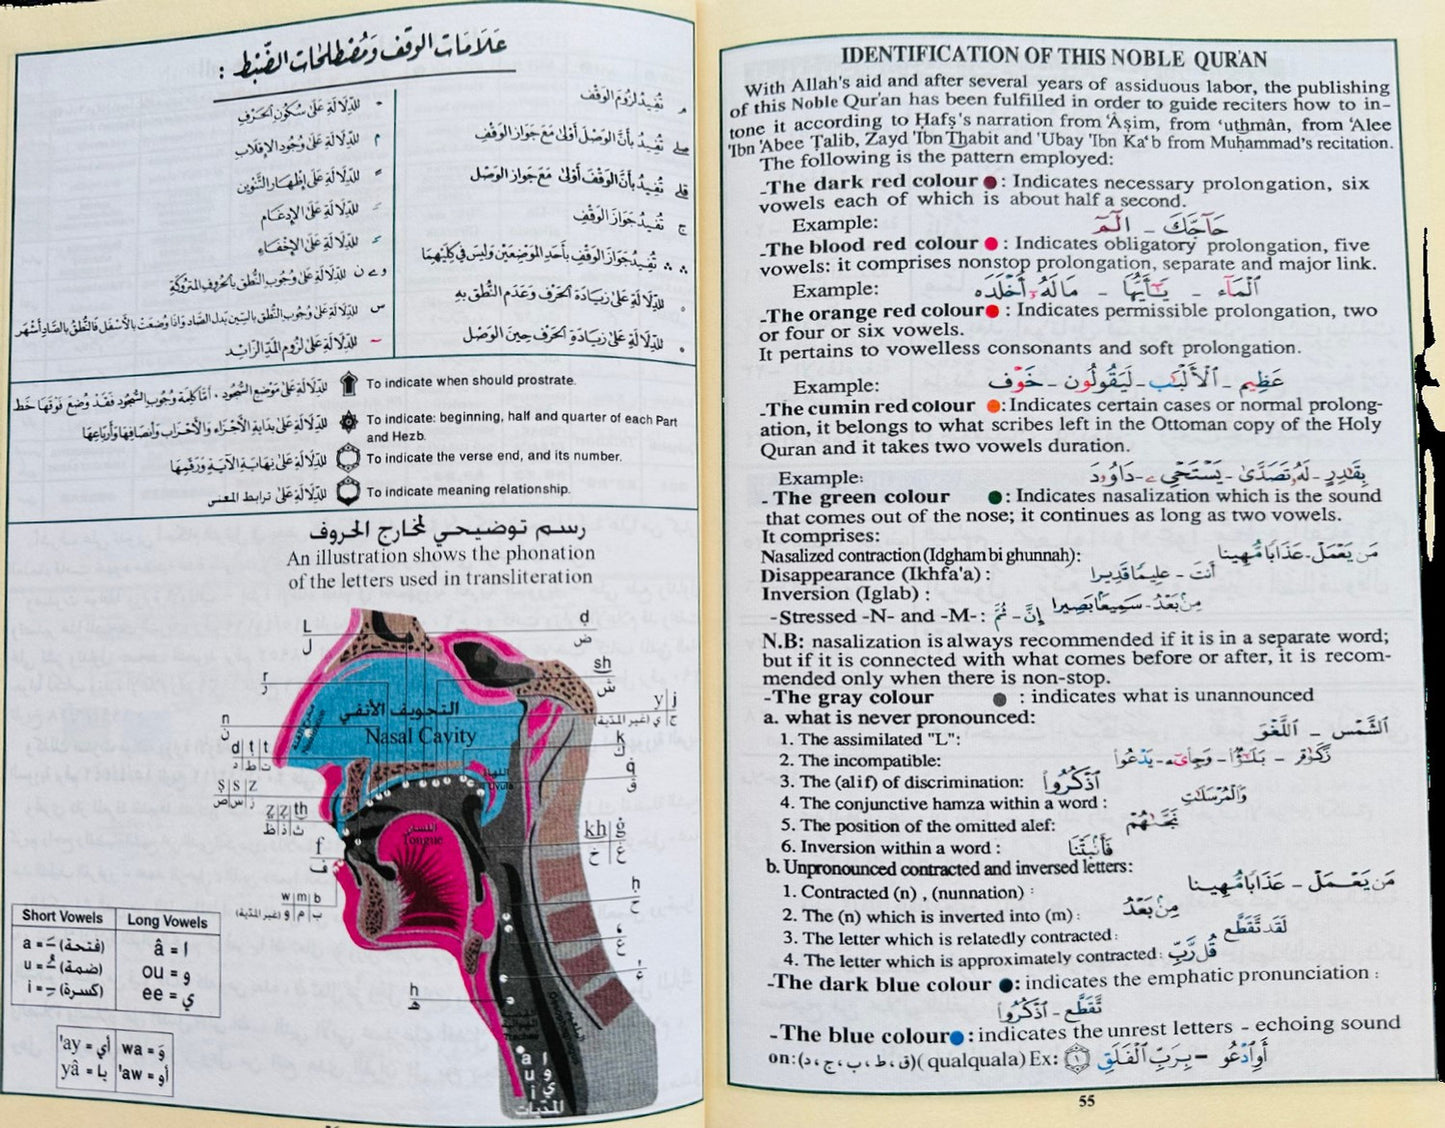 عَلَامَات الوَقْف وَمُصْطَلحَات الضَّبْط :
م تُفِيدُ لُزُومَ الوَقْفِ
صلے تُفِيدُ بأَنَّ الوَصْلَ أَوْلَىٰ مَعَ جَوَازِ الوَقْفِ
قلے تُفِيدُ بأَنَّ الوَقْفَ أَوْلَىٰ مَعَ جَوَازِ الوَصْلِ
ج تُفِيدُ جَوَازَ الوَقْفِ
∴ ∴ تُفِيدُ جَوَازَ الوَقْفِ بأَحَدِ المَوْضِعَيْنِ وَلَيسَ فِي كِلَيْهِمَا
للدِّلَالَةِ عَلىٰ زيَادَةِ الحَرْف وَعَدَم النُّطْقِ بِهِ
للدِّلَالَةِ عَلىٰ زيَادَةِ الحَرْفِ حِينَ الوَصْل
للدِّلَالَةِ عَلىٰ سُكُونِ الحَرْفِ
م للدِّلَالَةِ عَلىٰ وُجُودِ الإقلَابِ
للدِّلَالَةِ عَلىٰ إظهَارِ التَّنْوِين
للدِّلَالَةِ عَلىٰ الإدغَام
للدِّلَالَةِ عَلىٰ الإخْفَاءِ
و ے ن للدِّلَالَةِ عَلىٰ وُجُوب النُّطق بالحُروفِ المَتروكَة
س للدِّلَالَةِ عَلىٰ وُجُوب النُّطق بالسِّين بَدل الصَّاد وَاذَا وُضعَتْ بالأَسْفَل فَالنُّطْقُ بالصَّادِ أَشْهَر
للدِّلَالَةِ عَلىٰ لزُوم المَدِّ الزَّائِد
للدِّلَالَةِ عَلىٰ مَوْضِع السُّجُودِ ، أمَّا كَلِمَة وُجُوب السُّجُود فَقَدْ وُضِعَ فَوْقَهَا خَط To indicate when should prostrate.
للدِّلَالَةِ عَلىٰ بدَايَةِ الأجْزَاء وَالأحْزَاب وَأنصَافِهَا وَأَربَاعِهَا To indicate: beginning, half and quarter of each Part
and Hezb.
للدِّلَالَةِ عَلىٰ نِهَايَةِ الآيَةِ وَرَقمِهَا To indicate the verse end, and its number.
للدِّلَالَةِ عَلىٰ ترابط المعنى To indicate meaning relationship.
رسم توضيحي لمخارج الحروف
An illustration shows the phonation
of the letters used in transliteration
L
ل
ḍ
ض
r
ر
sh
ش
y j
ج ي (غير المدّية)
n
ن
k
ك
d ṭ t
د ط ت
q
ق
ṣ s z
ص س ز
ẓ z th
ظ ذ ث
kh ġ
خ غ
f
ف
ḥ
ح
w m b
ب م و (غير المدّية)
ع
ء
h
هـ
التجويف الأنفي
Nasal Cavity
اللهاة
Uvula
اللسان
Tongue
a ا
u و
i ي
المدّيات
Short Vowels Long Vowels
a = (فتحة) â = ا
u = (ضمة) ou = و
i = (كسرة) ee = ي
'ay = أي wa = وَ
yâ = يا 'aw = أو
IDENTIFICATION OF THIS NOBLE QUR'AN
With Allah's aid and after several years of assiduous labor, the publishing
of this Noble Qur'an has been fulfilled in order to guide reciters how to in-
tone it according to Ḥafṣ's narration from 'Âṣim, from 'uthmân, from 'Alee
'Ibn 'Abee Ṭalib, Zayd 'Ibn Thabit and 'Ubay 'Ibn Ka'b from Muḥammad's recitation.
The following is the pattern employed:
-The dark red colour : Indicates necessary prolongation, six
vowels each of which is about half a second.
Example: حَآجَّكَ - الٓمٓ
-The blood red colour : Indicates obligatory prolongation, five
vowels: it comprises nonstop prolongation, separate and major link.
Example: ٱلْمَآءِ - يَٰٓأَيُّهَا - مَالَهُۥٓ أَخْلَدَهُ
-The orange red colour : Indicates permissible prolongation, two
or four or six vowels.
It pertains to vowelless consonants and soft prolongation.
Example: عَظِيم - ٱلْأَلْبَٰب - لَيَقُولُون - خَوْف
-The cumin red colour : Indicates certain cases or normal prolong-
ation, it belongs to what scribes left in the Ottoman copy of the Holy
Quran and it takes two vowels duration.
Example: بِقَٰدِرٍ - لَهُۥ تَصَدَّىٰ - يَسْتَحْيِۦ - دَاوُۥدَ
- The green colour : Indicates nasalization which is the sound
that comes out of the nose; it continues as long as two vowels.
It comprises:
Nasalized contraction (Idgham bi ghunnah): مَن يَعْمَلْ - عَذَابًا مُّهِينًا
Disappearance (Ikhfa'a) : أَنتَ - عَلِيمًا قَدِيرًا
Inversion (Iglab) : مِنۢ بَعْدُ - سَمِيعًۢا بَصِيرًا
-Stressed -N- and -M- : إِنَّ - ثُمَّ
N.B: nasalization is always recommended if it is in a separate word;
but if it is connected with what comes before or after, it is recom-
mended only when there is non-stop.
-The gray colour : indicates what is unannounced
a. what is never pronounced:
1. The assimilated "L": ٱلشَّمْسُ - ٱللَّغْوَ
2. The incompatible: زَكَوٰة - بَلَٰٓؤٌا۟ - وَجِا۟ىٓءَ - يَدْعُوا۟
3. The (alif) of discrimination: ٱذْكُرُوا۟
4. The conjunctive hamza within a word : وَٱلْمُرْسَلَٰتِ
5. The position of the omitted alef: نَجَّىٰهُمْ
6. Inversion within a word : فَأَنۢبَتْنَا
b. Unpronounced contracted and inversed letters:
1. Contracted (n) , (nunnation) : مَن يَعْمَلْ - عَذَابًا مُّهِينًا
2. The (n) which is inverted into (m) : مِنۢ بَعْدُ
3. The letter which is relatedly contracted: لَقَد تَّقَطَّع
4. The letter which is approximately contracted: قُل رَّبِّ
-The dark blue colour : indicates the emphatic pronunciation :
تَّقَطَّع - ٱذْكُرُوا۟
-The blue colour : indicates the unrest letters - echoing sound
on: (ق، ط، ب، ج، د) ( qualquala) Ex: أَوِ ٱدْعُوا۟ - بِرَبِّ ٱلْفَلَقِ ١
55